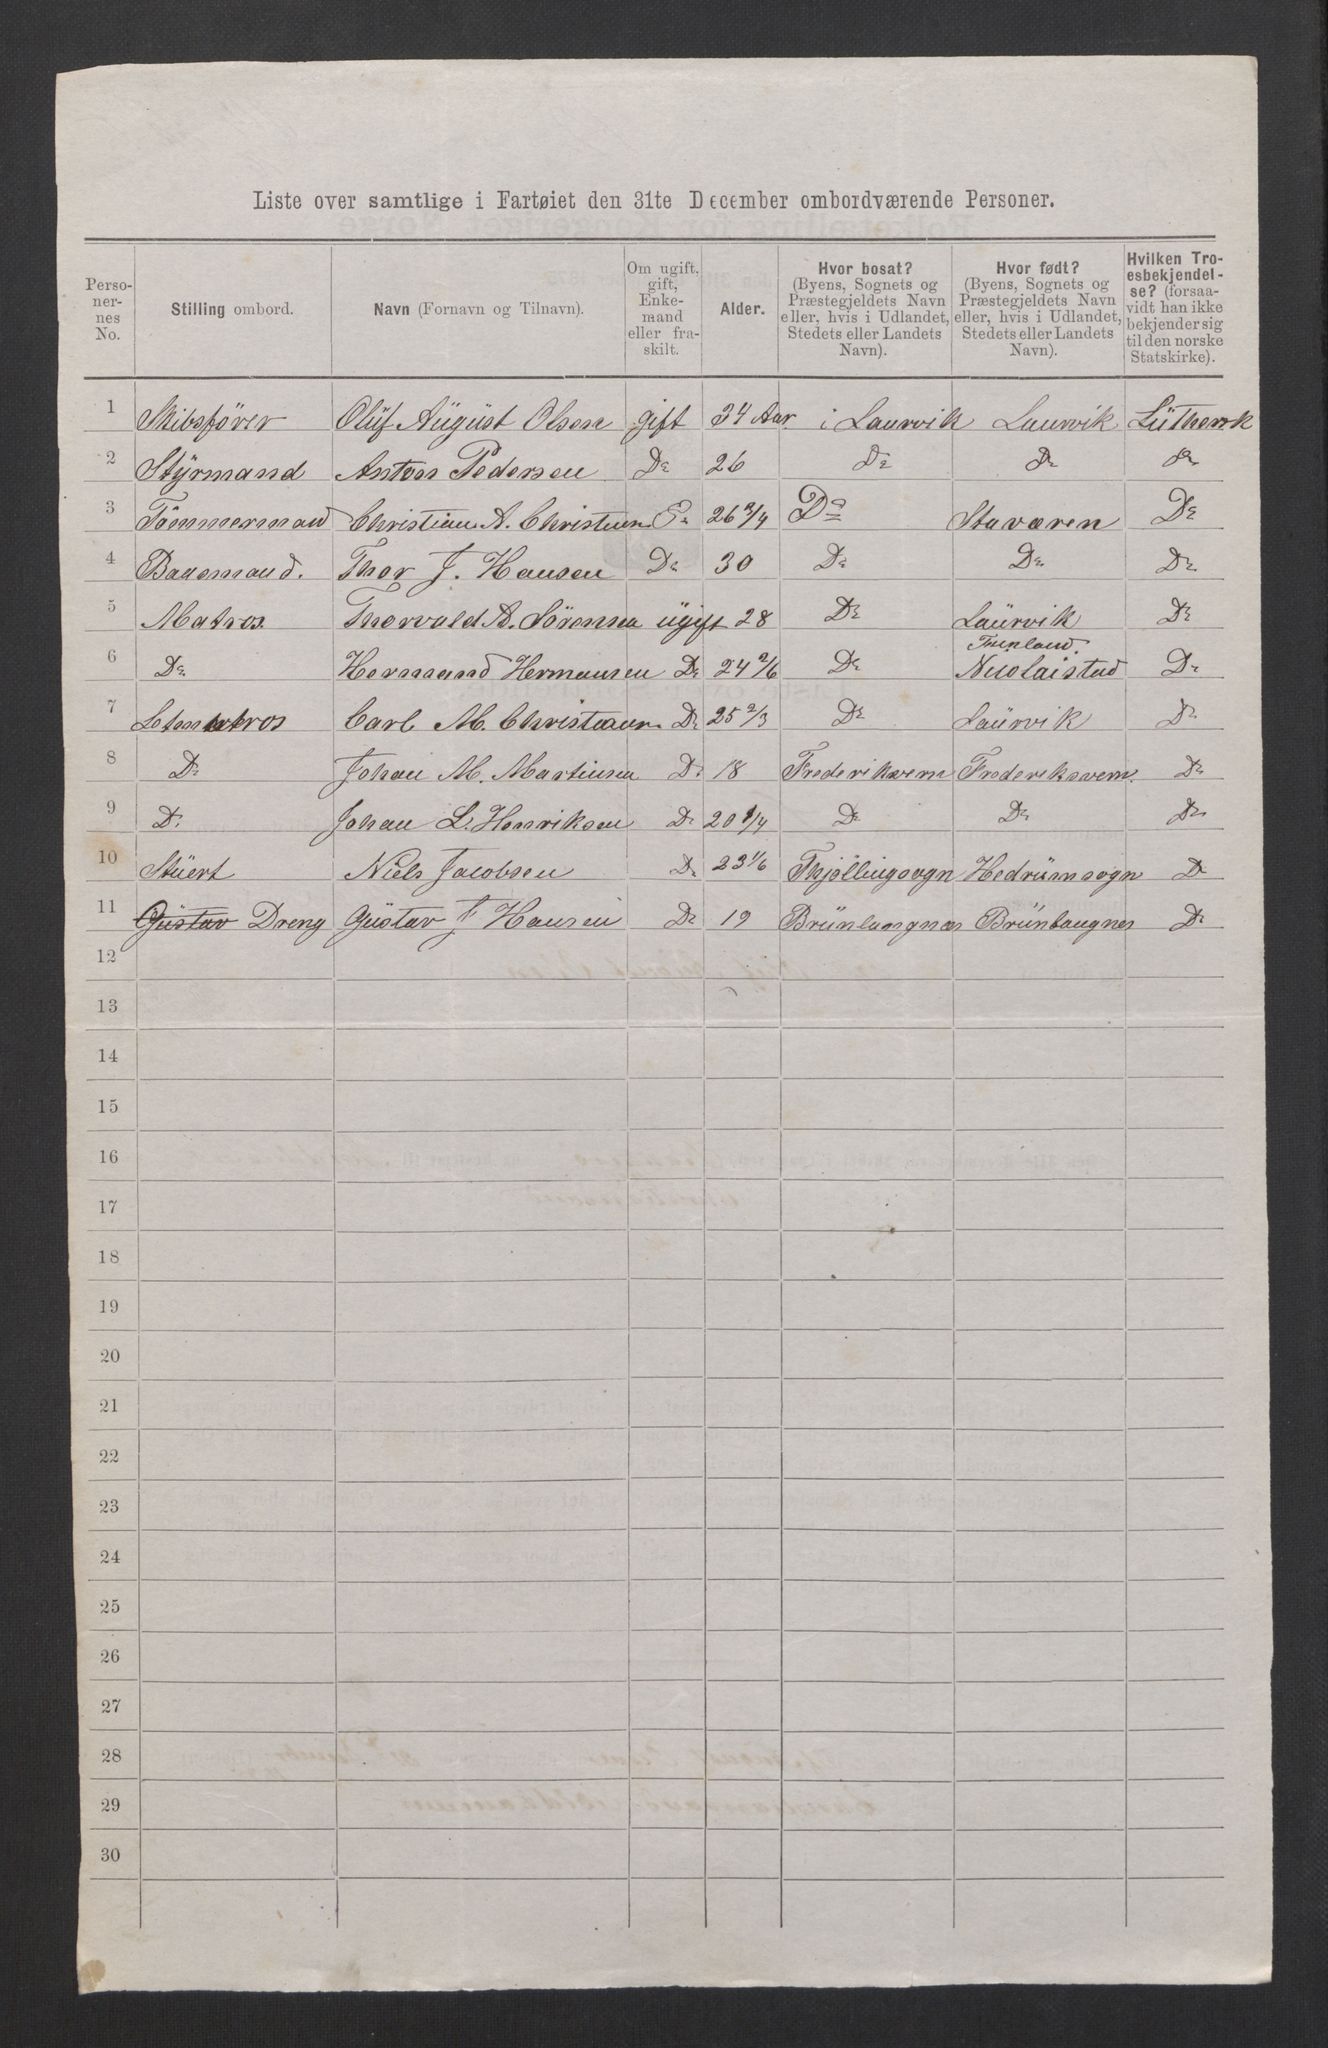 Liste over samtlige i Fartøiet den 31te December ombordværende Personer.
Perso-
ner-
nes
No.
Stilling ombord.
Navn (Fornavn og Tilnavn).
Om ugift,
gift,
Enke-
mand
eller fra-
skilt.
Alder.
Hvor bosat?
(Byens, Sognets og
Præstegjeldets Navn
eller, hvis i Udlandet,
Stedets eller Landets
Navn).
Hvor født?
(Byens, Sognets og
Præstegjeldets Navn
eller, hvis i Udlandet,
Stedets eller Landets
Navn).
Hvilken Tro-
esbekjendel-
se? (forsaa-
vidt han ikke
bekjender sig
til den norske
Statskirke).
1 Skibsfører Oluf August Olsen gift 34 Aar i Laurvik Laurvik Lüthersk
2 Styrmand Anton Pedersen Do 26 Do Do Do
3 Tömmermand Christian A. Christiansen Do 26 3/4 Do Staværen Do
4 Baadsmand. Thor J. Hansen Do 30 Do Do Do
5 Matros Thorvald A. Sörensen ugift 28 Do Laurvik Do
Finland.
6 Do Hermand Hermansen Do 24 2/6 Do Nicolaistad Do
7 Letmatros Carl M. Christiansen Do 25 2/3 Do Laurvik Do
8 Do Johan M. Martinsen Do 18 Frederiksvern Frederiksvern Do
9 Do Johan L. Henriksen Do 20 1/4 Do Do Do
10 Stuert Niels Jacobsen Do 23 1/6 Thjöllingsogn Hedrumsogn Do
11 Gustav Dreng Gustav J Hansen Do 19 Brunlangnæs Brunlaugnes Do
12
13
14
15
16
17
18
19
20
21
22
23
24
25
26
27
28
29
30